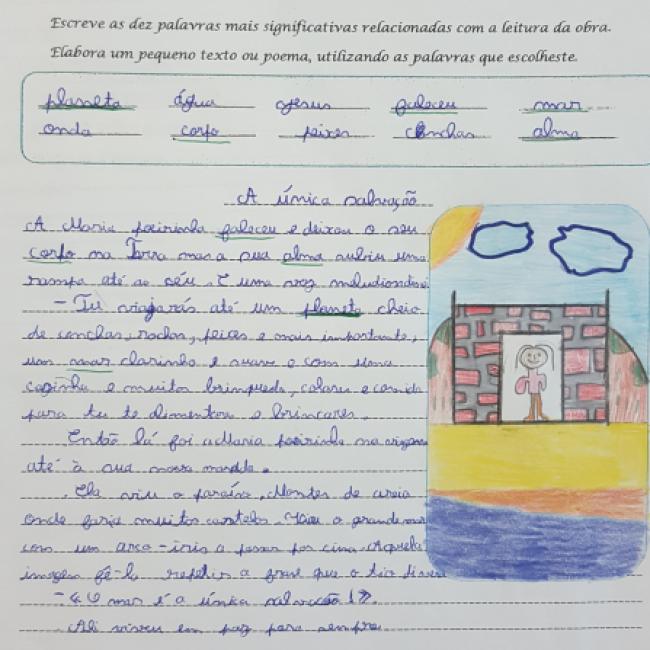 Escreve as dez palavras mais significativas relacionadas com a leitura da obra.
Elabora um pequeno texto ou poema, utilizando as palavras que escolheste.
planeta água Jesus faleceu mar
onda corpo peixes conchas alma
A única salvação
A Maria peixinha faleceu e deixou o seu
corpo na Terra mas a sua alma subiu uma
rampa até ao céu. E uma voz
- Tu viajarás até um planeta cheio
de conchas, rochas, peixes e mais importante,
um mar clarinho e suave e com uma
e muitos brinquedo, colares e comida
para tu te alimentares e brincares.
Então lá foi a Maria peixinha na viagem
até à sua nova
Ela viu o paraíso. Montes de areia
onde faria muitos castelos. Viu o grande mar
com um arco-iris a passar por cima. Aquela
imagem fê-la repetir a frase que o tio
- « O mar é a única salvação!».
Ali viveu em paz para sempre